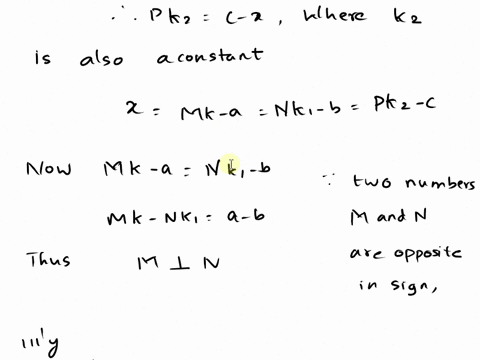 ∴ Pk₂ = c-x, Where k₂
is also a constant
x = Mk-a = Nk₁-b = Pk₂-c
Now Mk-a = Nk₁-b
Mk-Nk₁ = a-b
Thus M ⊥ N
∵ two numbers
M and N
are opposite
in sign,
111'y